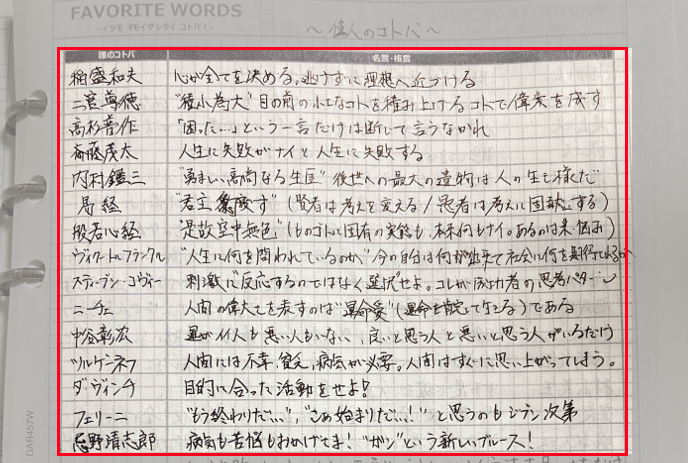 FAVORITE WORDS
～イツモオモイダシタイコトバ！～
～偉人のコトバ～
誰のコトバ 名言・格言
稲盛和夫 心が全てを決める。逃げずに理想へ近づける
二宮尊徳 "積小為大" 目の前の小さなコトを積み上げるコトで偉業を成す
高杉晋作 「困った…」という一言だけは断じて言うなかれ
斎藤茂太 人生に失敗がナイと人生に失敗する
内村鑑三 "勇ましい高尚なる生涯" 後世への最大の遺物は人の生き様だ
易経 "君主豹変す" (賢者は考えを変える/愚者は考えに固執する)
般若心経 "是故空中無色" (ものゴトに固有の実態も、本来何もナイ。あるのは未
ヴィクトール・フランクル "人生に何を問われているのか、" 今の自分は何が出来て社会に何を期待
スティーブン・コヴィー 刺激に"反応するのではなく選択せよ。コレが成功者の思考パターン
ニーチェ 人間の偉大さを表すのは"運命愛"(運命を肯定して生きる)である
中谷彰宏 運がイイ人も悪い人もいない、良いと思う人と悪いと思う人がいるだけ
ツルゲーネフ 人間には不幸、貧乏、病気が必要。人間はすぐに思い上がってしまう。
ダ・ヴィンチ 目的に合った活動をせよ!
フェリーニ "もう終わりだ…"、"さぁ始まりだ…!"と思うのもジブン次第
忌野清志郎 病気も苦悩もおかげさま! "ガン"という新しいブルース!
DAR457W